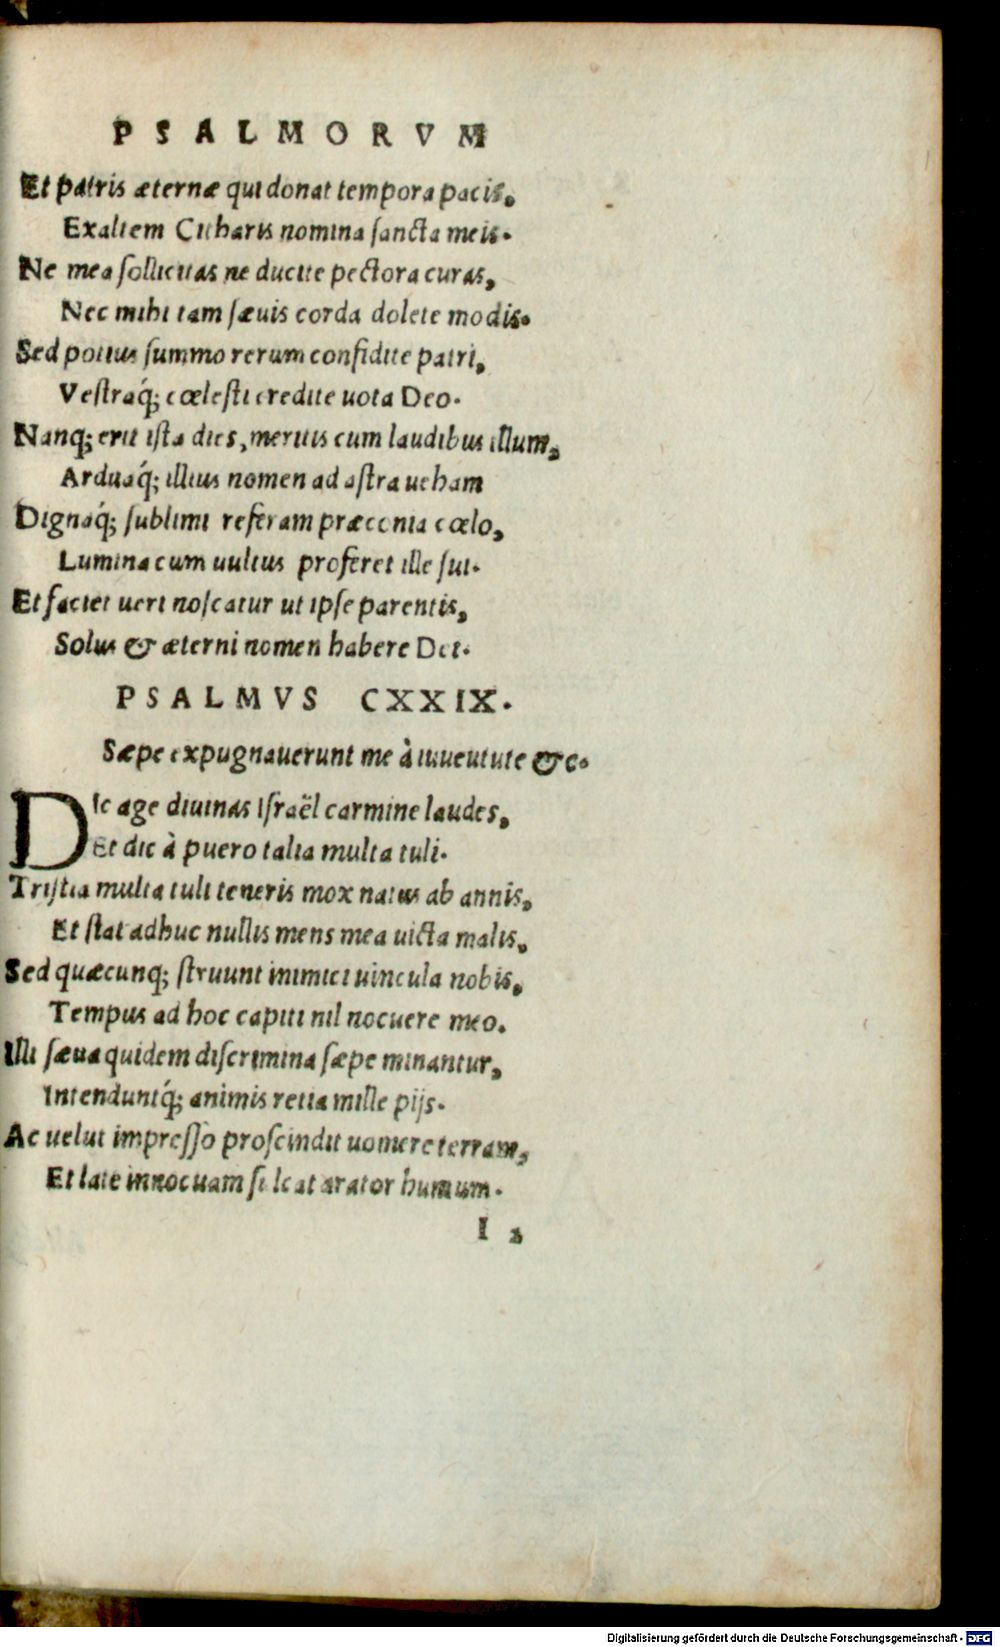 PSALMORVM
Et patris æternæ qui donat tempora pacis,
Exaltem Citharis nomina ſancta meis.
Ne mea ſollicitas ne ducite pectora curas,
Nec mihi tam ſæuis corda dolete modis.
Sed potius ſummo rerum confidite patri,
Veſtraq́; cœleſti credite uota Deo.
Nanq; erit iſta dies, meritis cum laudibus illum,
Arduaq́; illius nomen ad aſtra ueham
Dignaq́; ſublimi referam præconia cœlo,
Lumina cum uultus proferet ille ſui.
Et faciet ueri noſcatur ut ipſe parentis,
Solus & æterni nomen habere Dei.
PSALMVS CXXIX.
Sæpe expugnauerunt me à iuuentute &c.
DIc age diuinas Iſraël carmine laudes,
Et dic à puero talia multa tuli.
Triſtia multa tuli teneris mox natus ab annis,
Et ſtat adhuc nullis mens mea uicta malis,
Sed quæcunq; ſtruunt inimici uincula nobis,
Tempus ad hoc capiti nil nocuere meo.
Illi ſæua quidem diſcrimina ſæpe minantur,
Intenduntq́; animis retia mille pijs.
Ac uelut impreſſo proſcindit uomere terram,
Et late innocuam ſulcat arator humum.
I 2
Digitalisierung gefördert durch die Deutsche Forschungsgemeinschaft - DFG